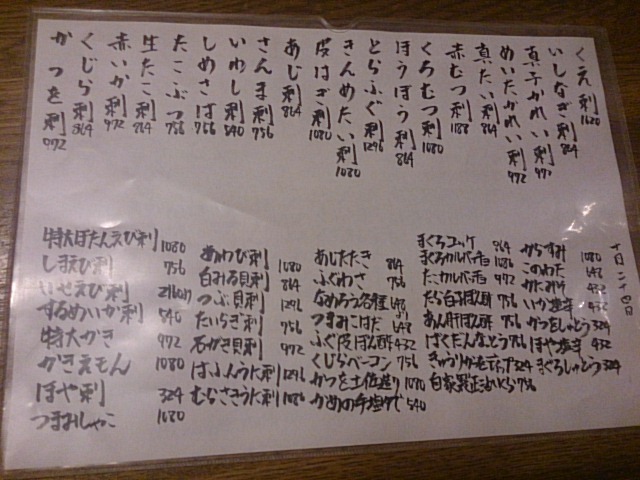 くえ刺 1620
いしなぎ刺 864
真子かれい刺 972
めいたかれい刺 972
真たい刺 864
赤むつ刺 1188
くろむつ刺 1080
ほうぼう刺 864
とらふぐ刺 1296
きんめたい刺 1080
皮はぎ刺 1080
あじ刺 864
さんま刺 756
いわし刺 540
しめさば 756
たこぶつ 756
生たこ刺 864
赤いか刺 972
くじら刺 864
かつを刺 972
十月二十四日
特大ぼたんえび刺 1080
しまえび刺 756
いせえび刺
するめいか刺 540
特大かき 972
かきえもん 1080
ほや刺 324
つまみしゃこ 1080
あわび刺 1080
白みる貝刺 864
つぶ貝刺 1296
たいらぎ刺 756
石がき貝刺 972
ばふんうに刺 1296
むらさきうに刺 1086
あじたたき 864
ふぐわさ 756
なめろう各種 648
つまみこはだ 648
ふぐ皮ぽん酢 432
くじらベーコン 756
かつを土佐造り 1080
かめの手塩ゆで 540
まぐろユッケ 864
まぐろカルパッチョ 1086
たこカルパッチョ 972
たら白子ぽん酢 756
あん肝ぽん酢 756
ばくだんなっとう 756
きゅうりかにみそディップ 324
自家製正油いくら 756
からすみ 1080
このわた 648
かにみそ 432
いか塩辛 432
かつをしゅとう 324
ほや塩辛 432
まぐろしゅとう 324